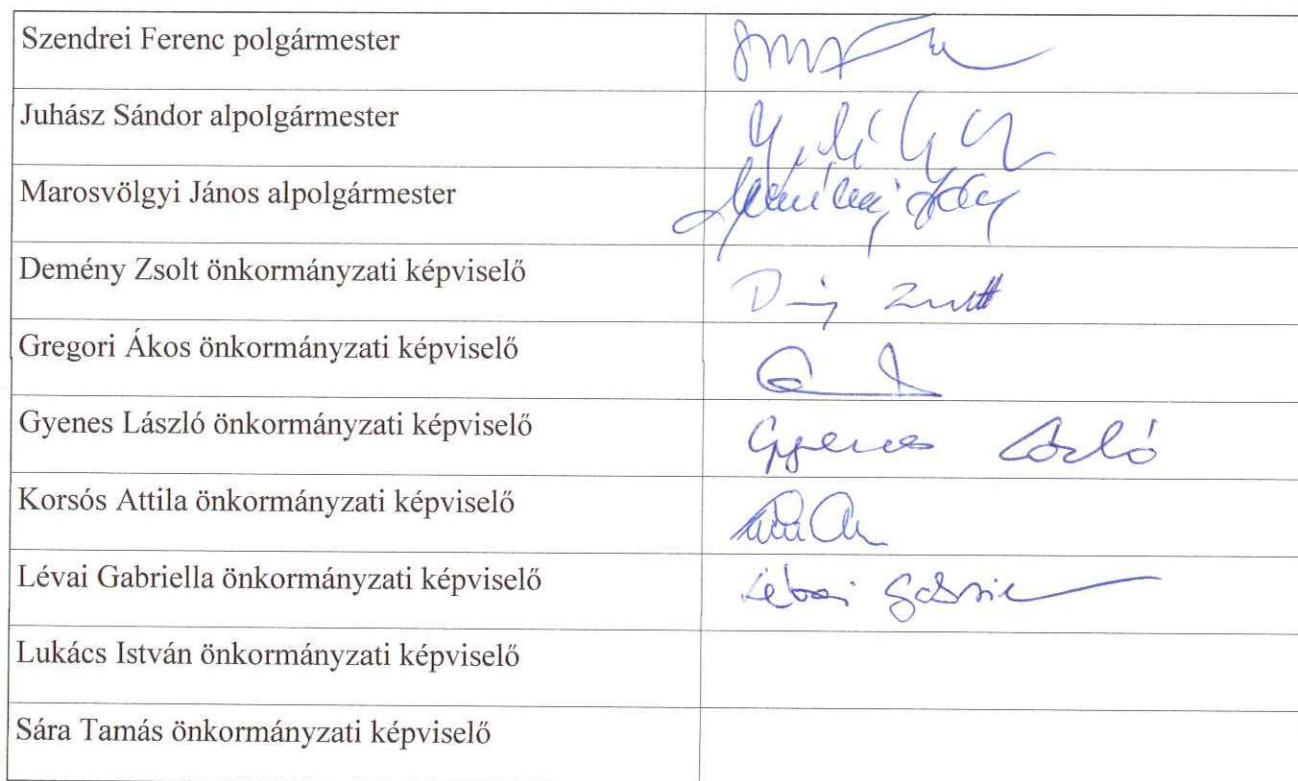 Szendrei Ferenc polgármester
Juhász Sándor alpolgármester
Marosvölgyi János alpolgármester
Demény Zsolt önkormányzati képviselő
Gregori Ákos önkormányzati képviselő
Gyenes László önkormányzati képviselő Gyenes László
Korsós Attila önkormányzati képviselő
Lévai Gabriella önkormányzati képviselő
Lukács István önkormányzati képviselő
Sára Tamás önkormányzati képviselő